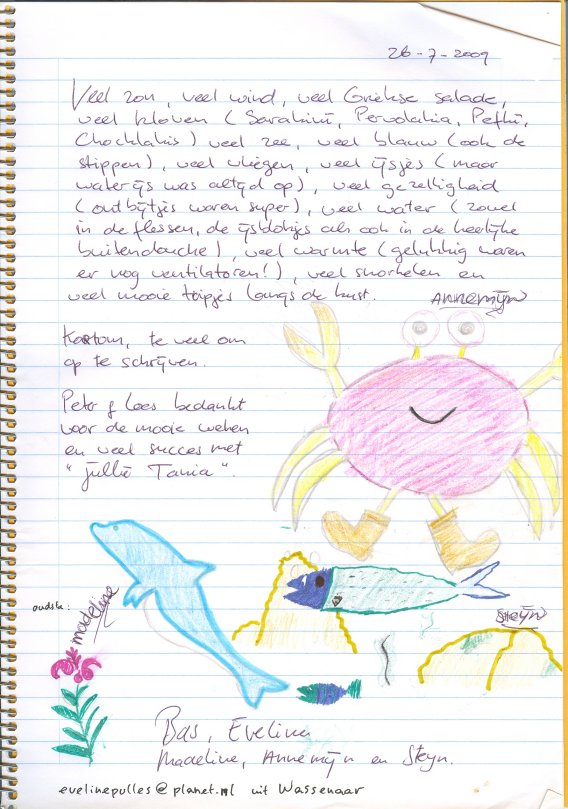 26-7-2009
Veel zon, veel wind, veel Griekse salade,
veel kloven (Sarakini, Pervolakia, Pefki,
Chocklakis) veel zee, veel blauw (ook de
stippen), veel vliegen, veel ijsjes (maar
waterijs was altijd op), veel gezelligheid
(ontbijtjes waren super), veel water (zowel
in de flessen, de ijsblokjes als ook in de heerlijke
buitendouche), veel warmte (gelukkig waren
er nog ventilatoren!), veel snorkelen en
veel mooie tripjes langs de kust.
Annemijn
Kortom, te veel om
op te schrijven.
Peter & Loes bedankt
voor de mooie weken
en veel succes met
"jullie Tania".
oudste:
madeline
Steijn
Bas, Eveline
Madeline, Annemijn en Steyn.
evelinepulles@planet.nl uit Wassenaar